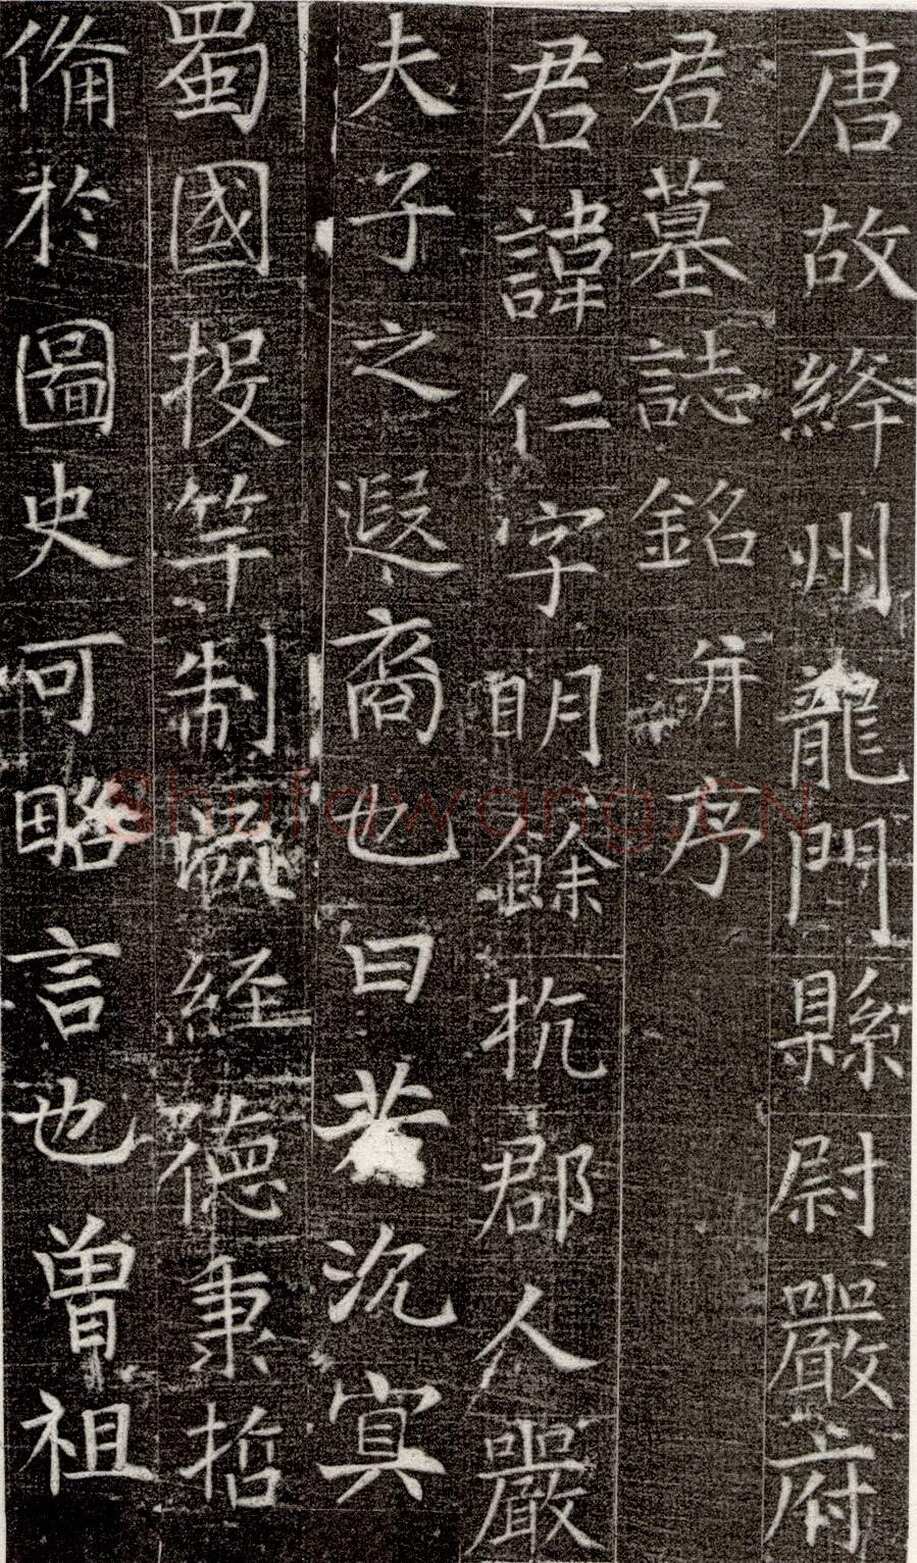 唐故絳州龍門縣尉嚴府
君墓誌銘并序
君諱仁字明餘杭郡人嚴
夫子之遐裔也曰若沉冥
蜀國投竿制瓨経德秉哲
俻於圖史可略言也曽祖
Shufawang.CN